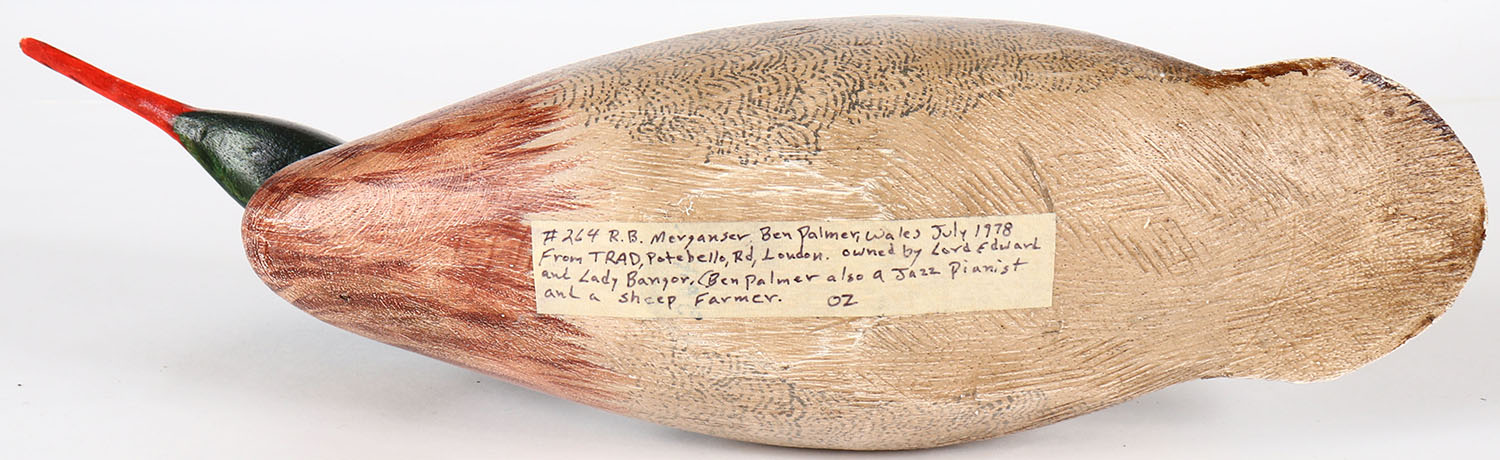 #264 R.B. Merganser, Ben Palmer, Wales July 1978
From TRAD, Potebello, Rd, London. owned by Lord Edward
and Lady Bangor. (Ben Palmer also a Jazz Pianist
and a sheep Farmer. OZ